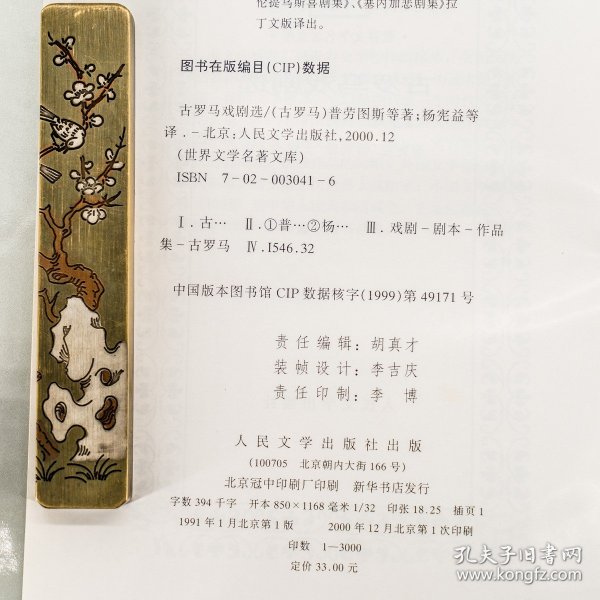 伦提马斯喜剧集》、《塞内加悲剧集》拉
丁文版译出。
图书在版编目(CIP)数据
古罗马戏剧选/(古罗马)普劳图斯等著;杨宪益等
译.-北京:人民文学出版社,2000.12
(世界文学名著文库)
ISBN 7-02-003041-6
Ⅰ.古… Ⅱ.①普…②杨… Ⅲ.戏剧-剧本-作品
集-古罗马 Ⅳ.I546.32
中国版本图书馆CIP数据核字(1999)第49171号
责任编辑:胡真才
装帧设计:李吉庆
责任印制:李 博
人民文学出版社出版
(100705 北京朝内大街166号)
北京冠中印刷厂印刷 新华书店发行
字数394千字 开本850×1168毫米1/32 印张18.25 插页1
1991年1月北京第1版 2000年12月北京第1次印刷
印数 1-3000
定价 33.00 元
孔夫子旧书网
www.kongfz.com